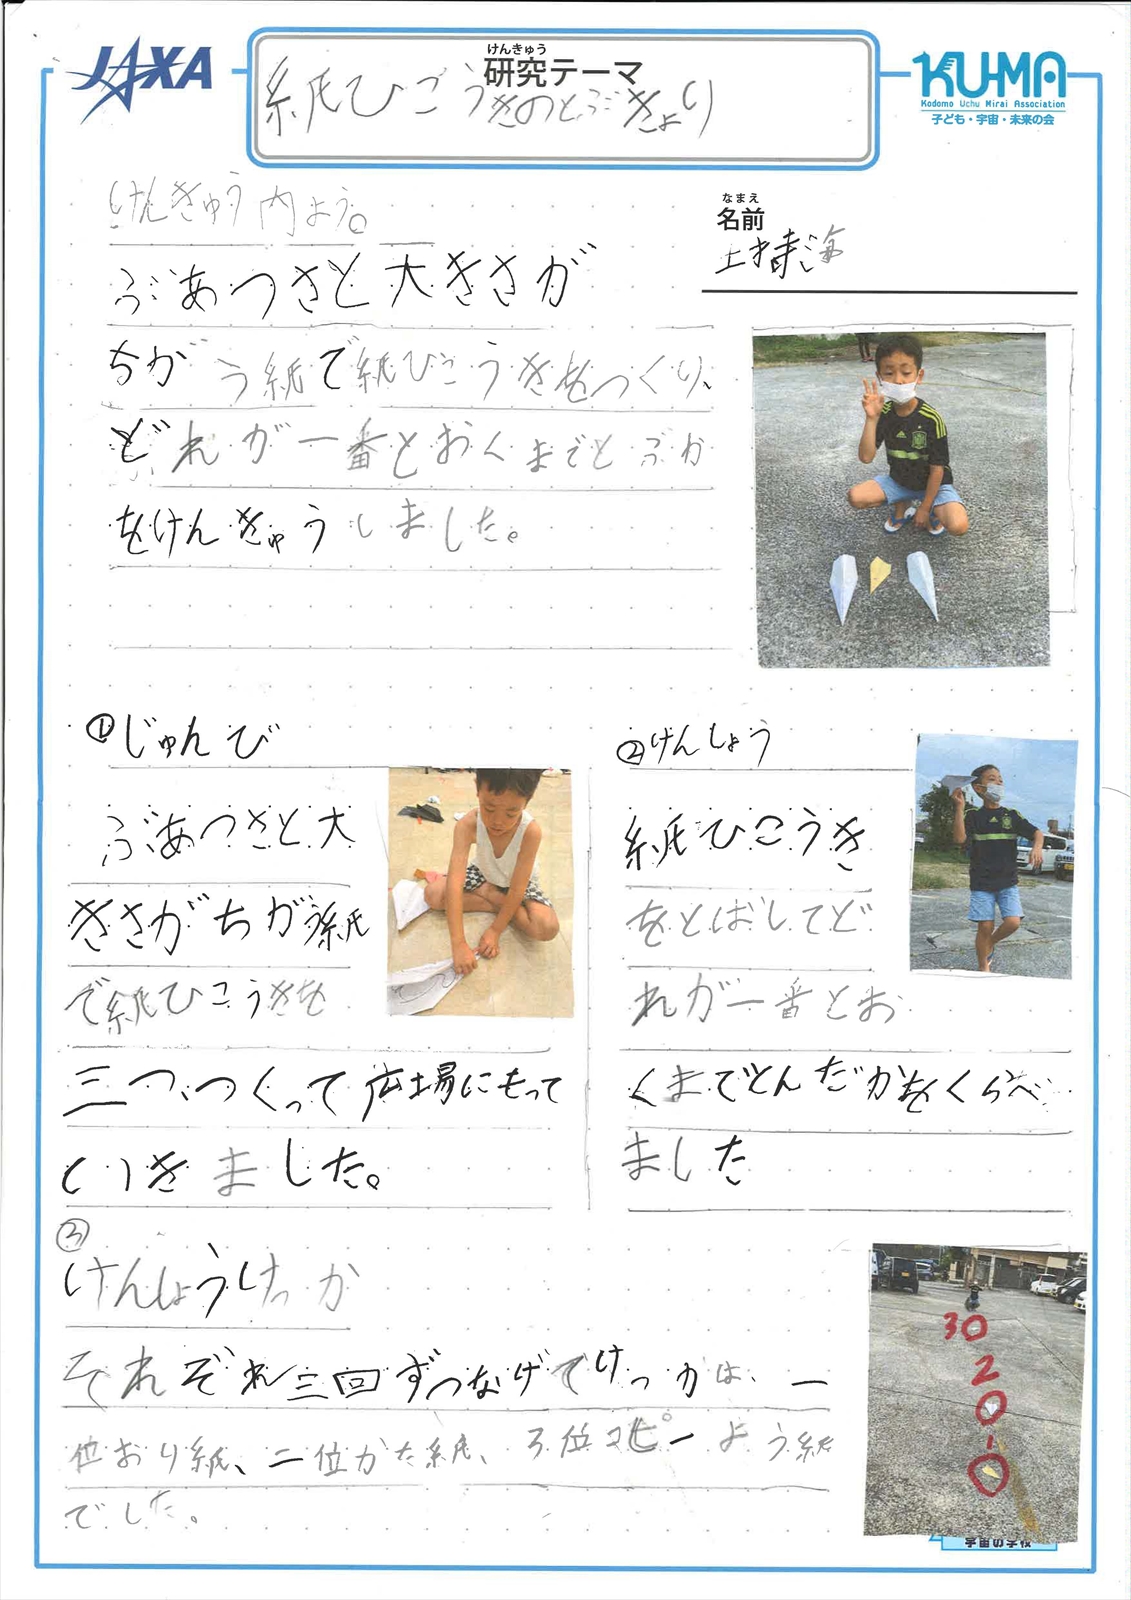 JAXA
けんきゅう
研究テーマ
紙ひこうきのとぶきょり
KU-MA
Kodomo Uchu Mirai Association
子ども・宇宙・未来の会
けんきゅう内よう。
なまえ
名前
ぶあつさと大きさが
ちがう紙で紙ひこうきをつくり、
どれが一番とおくまでとぶか
をけんきゅうしました。
①じゅんび
ぶあつさと大
きさがちがう紙
で紙ひこうきを
三つ、つくって広場にもって
いきました。
②けんしょう
紙ひこうき
をとばしてど
れが一番とお
くまでとんだかをくらべ
ました
③
けんしょうけっか
それぞれ三回ずつなげてけっかは、一
位おり紙、二位かた紙、3位コピーよう紙
でした。
30
20
10
宇宙の学校